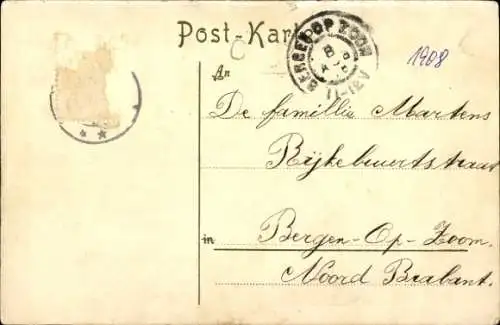 Post-Kart
BERGEN OP ZOOM
8
11-12V
1908
An
De famillie Martens
Rijkebuurtstraat
in Bergen-Op-Zoom.
Noord Brabant.